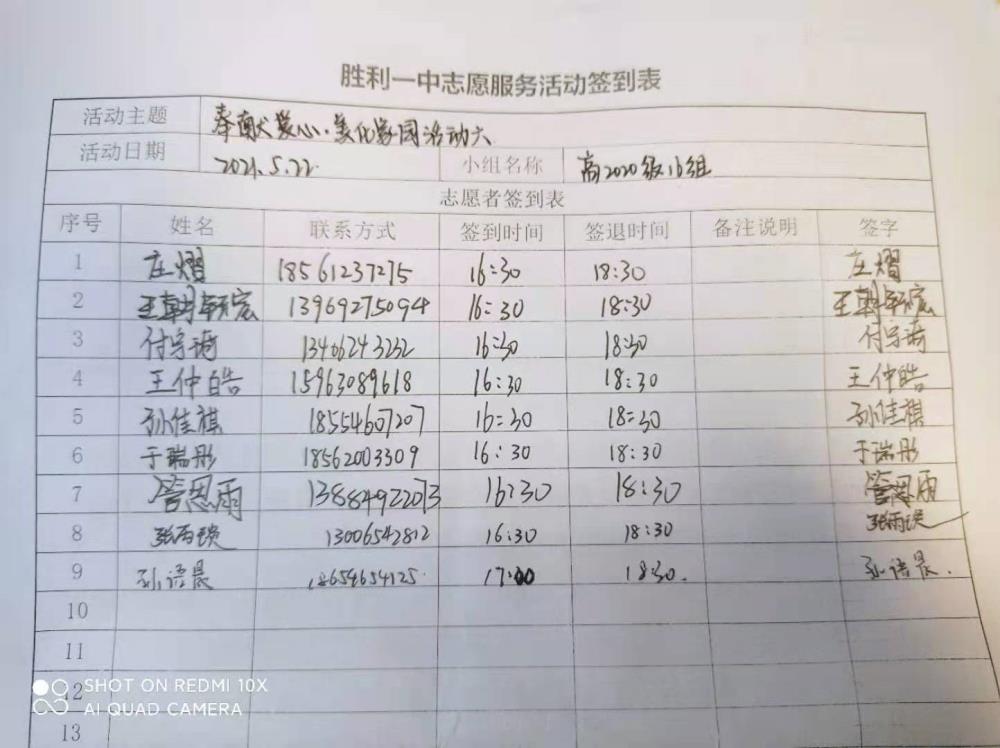 胜利一中志愿服务活动签到表
活动主题 奉献爱心·美化家园活动六
活动日期 2021.5.22. 小组名称 高2020级16组
志愿者签到表
序号 姓名 联系方式 签到时间 签退时间 备注说明 签字
1 庄熠 18561237275 16:30 18:30 庄熠
2 13969275094 16:30 18:30
3 付宇琦 13406243232 16:30 18:30 付宇琦
4 王仲皓 15963089618 16:30 18:30 王仲皓
5 孙佳祺 18554607207 16:30 18:30 孙佳祺
6 于瑞彤 18562003309 16:30 18:30 于瑞彤
7 管恩雨 13884922073 16:30 18:30 管恩雨
8 张雨琰 13006542812 16:30 18:30 张雨琰
9 孙语晨 18654654125. 17:00 18:30. 孙语晨.
10
11
12
13
SHOT ON REDMI 10X
AI QUAD CAMERA